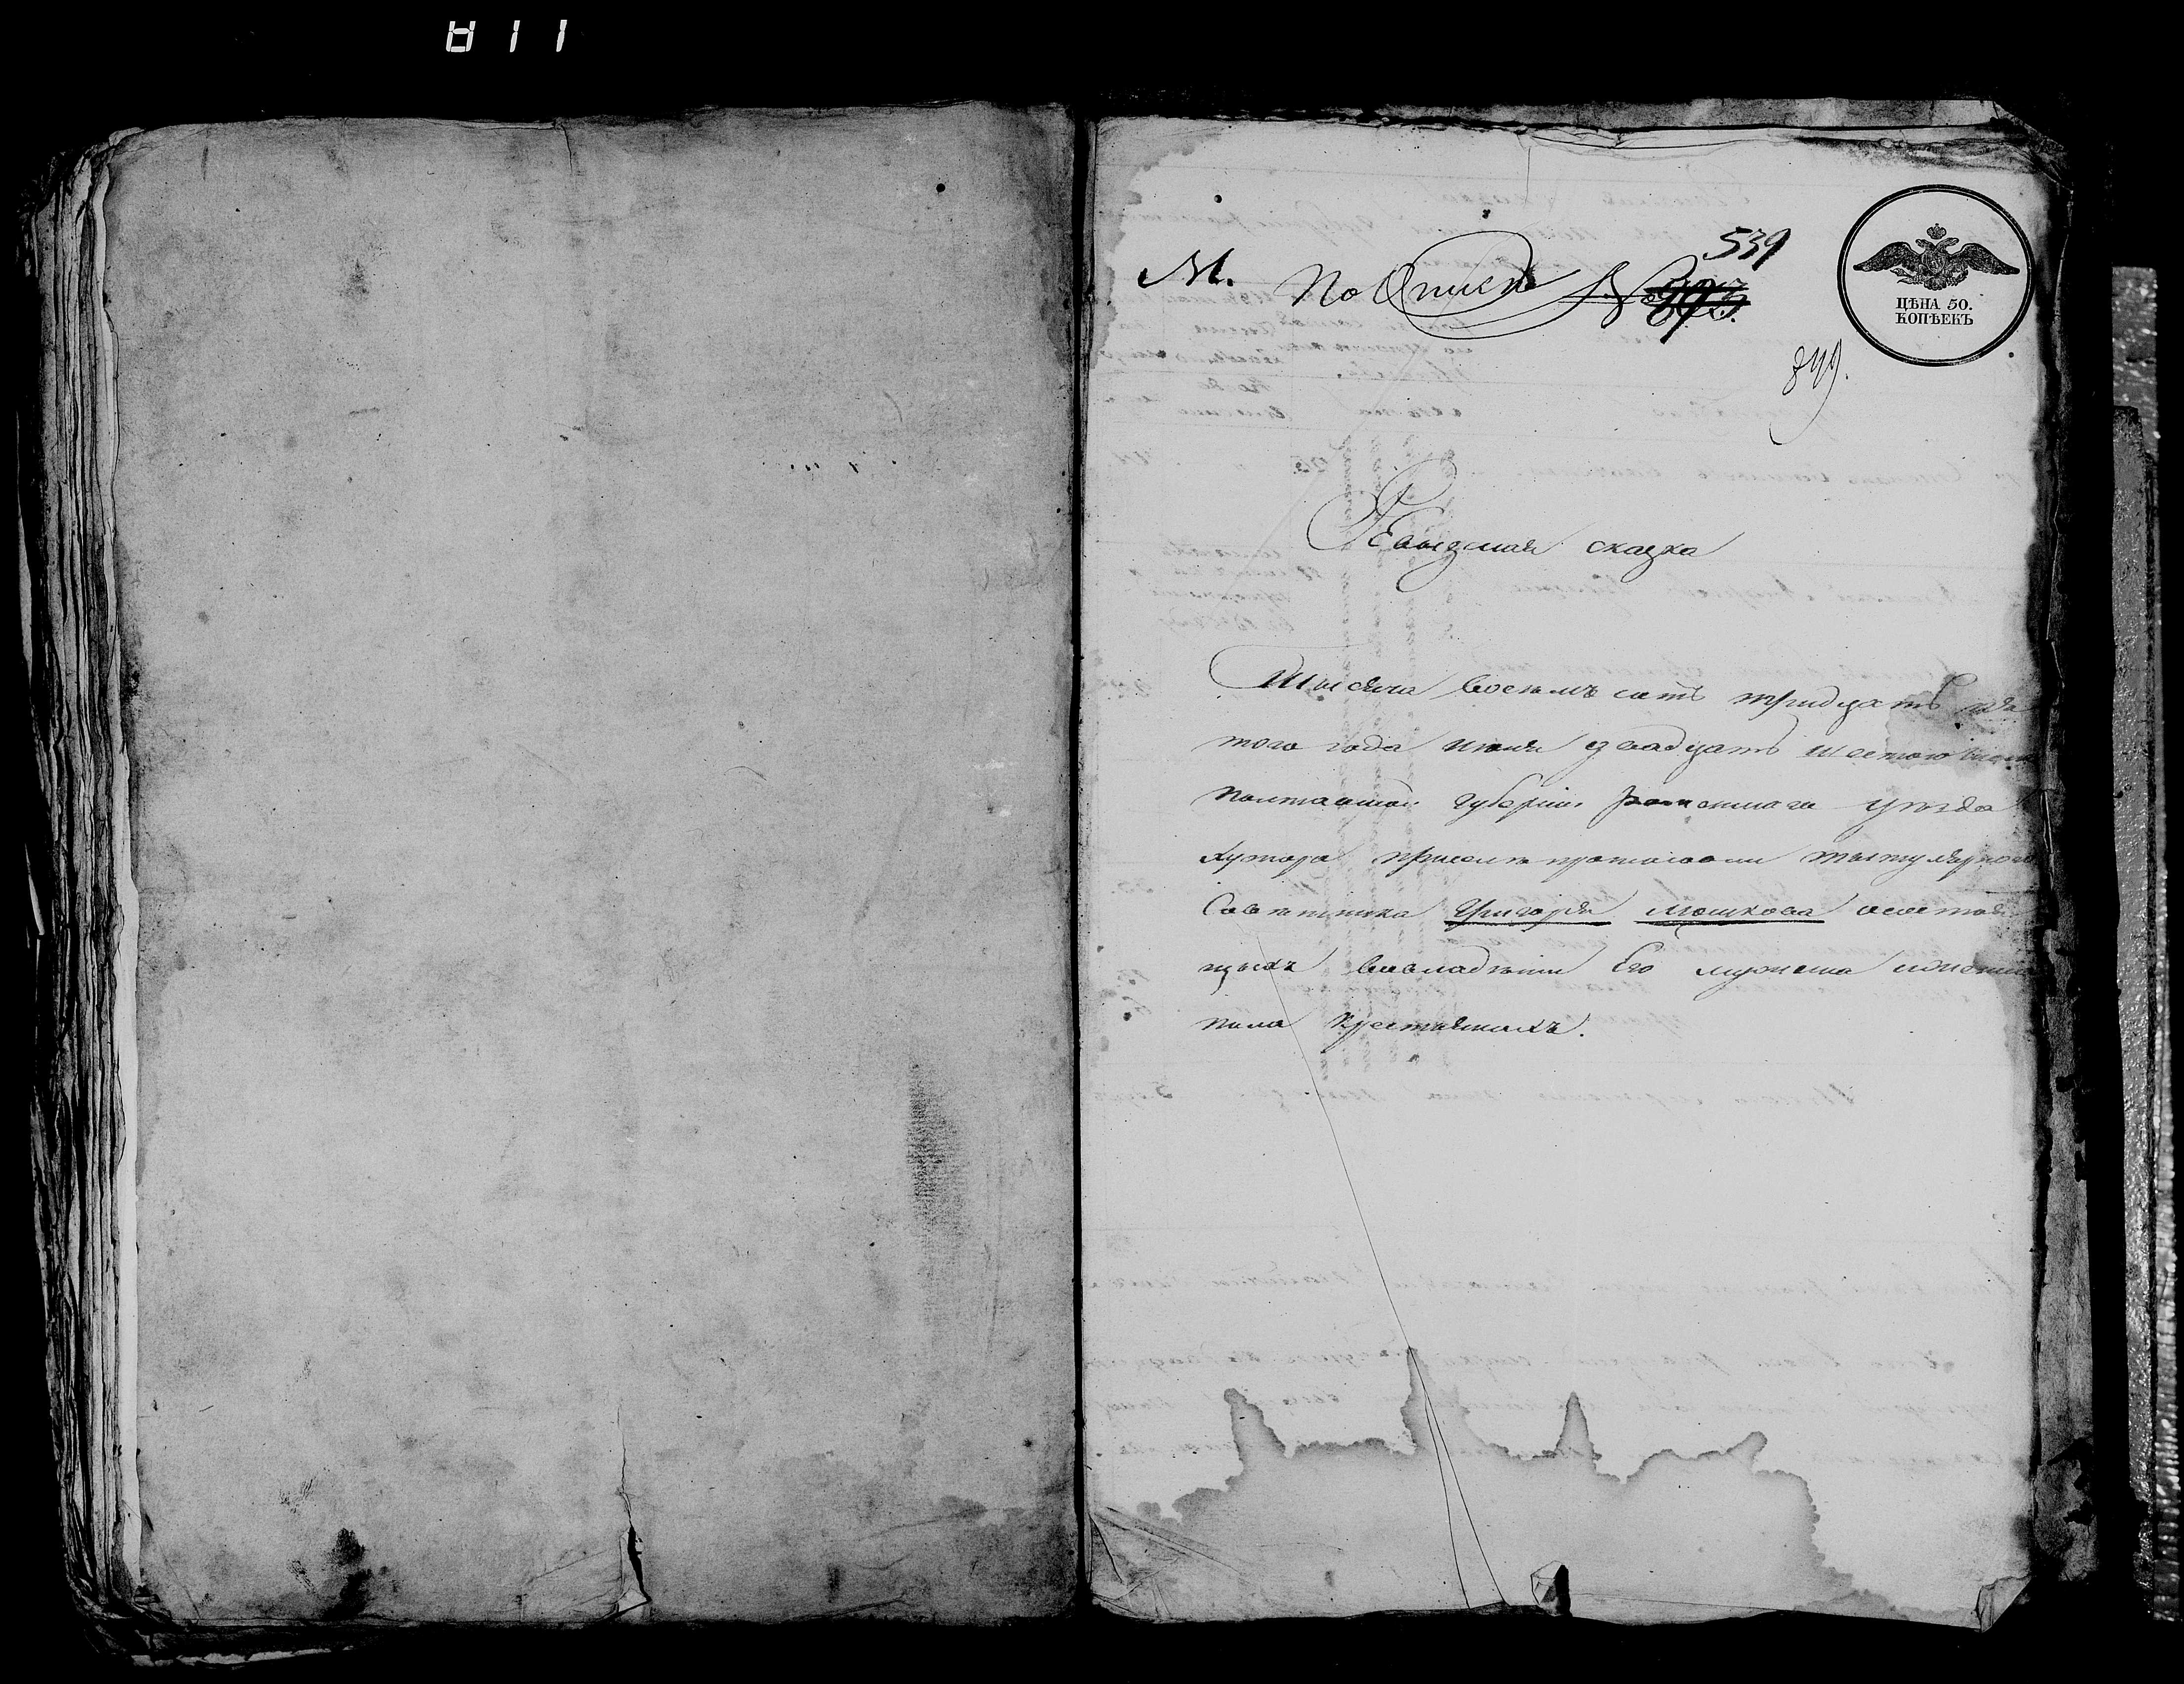 811
М. По Описи № 893.
539
ЦѢНА 50.
КОПѢЕКЪ
849.
Ревизская сказка
Тысяча восемъ сотъ тридцать пя
того года июня двадцать шестого
полтавской губернии роменского уезда
хутора при селе титулярного
Советника Григория Мошкова
щихъ вовладении Его мужеска
пола крестьянахъ.